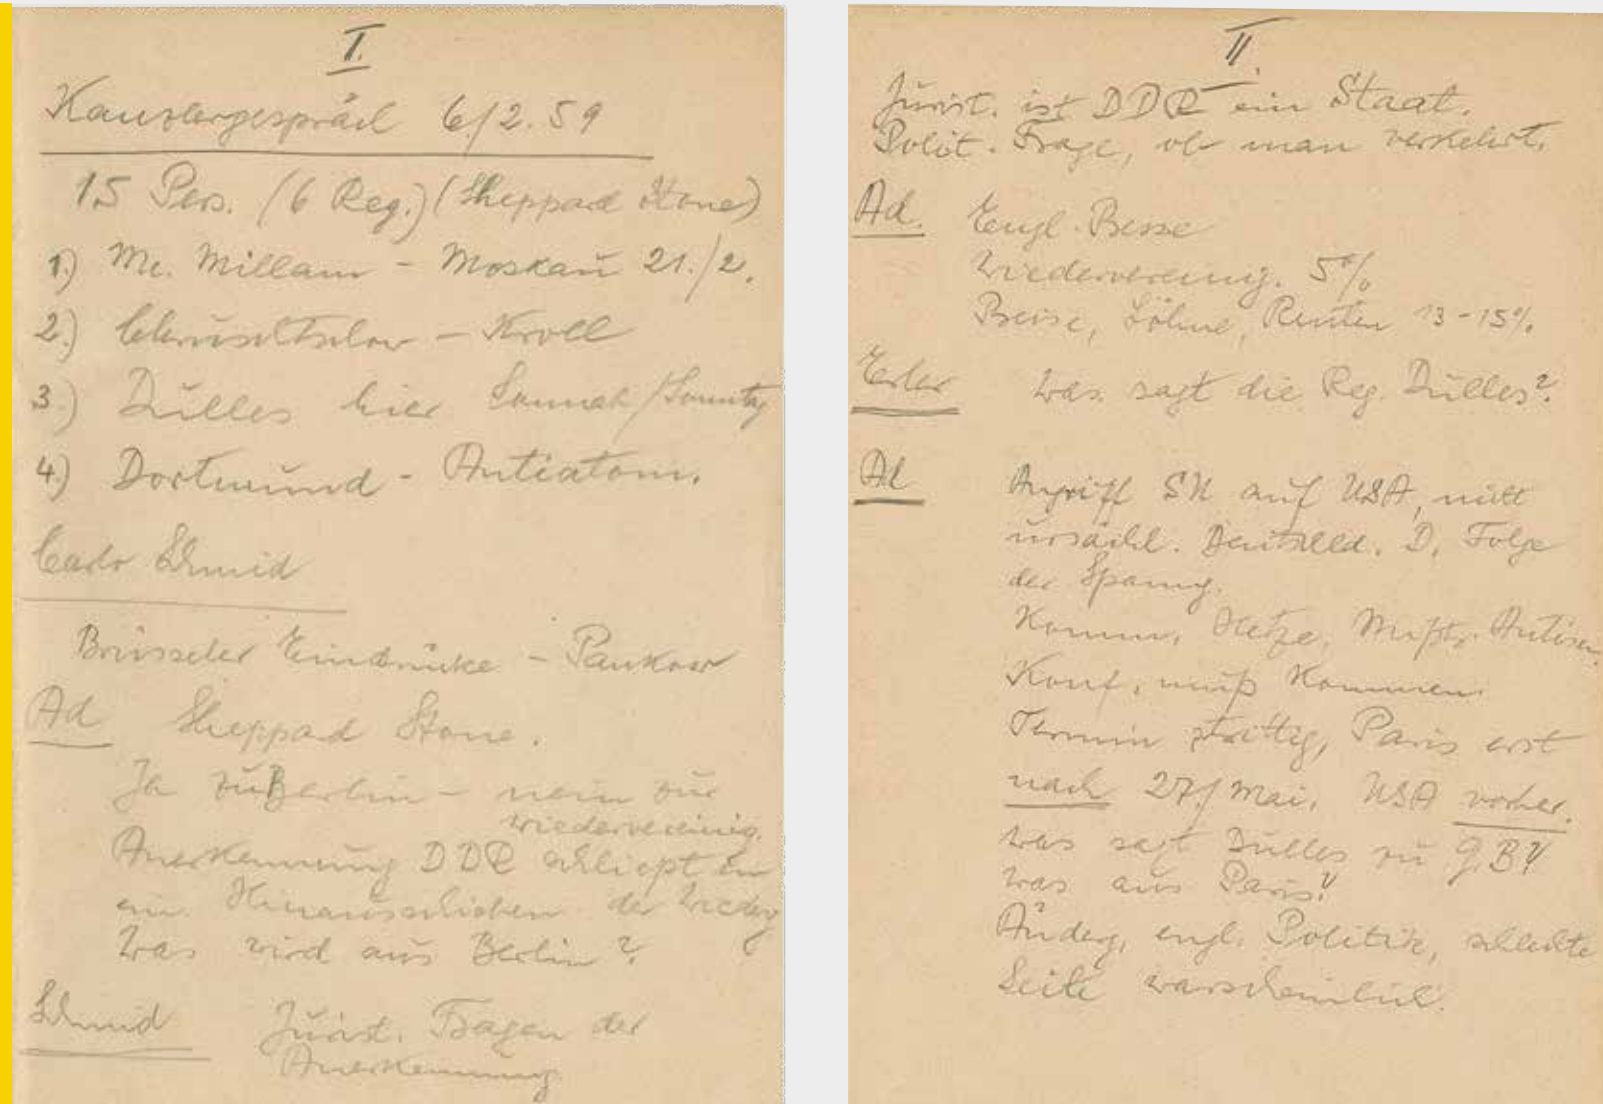 I.
Kanzlergespräch 6/2.59
15 Pers. (6 Reg.) (Sheppard Stone)
1.) Mc. Millan - Moskau 21./2.
2.) Chruschtschow - Kroll
3.) Dulles hier Sonnab/Sonntg
4.) Dortmund - Antiatom.
Carlo Schmid
Brüsseler Eindrücke - Pankow
Ad Sheppard Stone.
Ja zu Berlin - nein zur
wiedervereinig.
Anerkennung DDR schließt ein
ein Hinausschieben der Wiedvg
Was wird aus Berlin?
Schmid Jurist. Fragen der
Anerkennung
II.
Jurist. ist DDR ein Staat.
Polit. Frage, ob man verkehrt.
Ad. Engl.
Wiedervereinig. 5%
Preise, Löhne, Renten 13-15%
Erler Was sagt die Reg. Dulles?
Ad Angriff SU auf USA, nicht
ursächl. Deutschld. D. Folge
der Spanng.
Komm. Hetze, Mißtr. Antisem.
Konf. muß kommen.
Termin strittig, Paris erst
nach 27/Mai. USA vorher.
Was sagt Dulles zu G.B?
Was aus Paris?
Änderg. engl. Politik, schlechte
Seite warscheinlich.